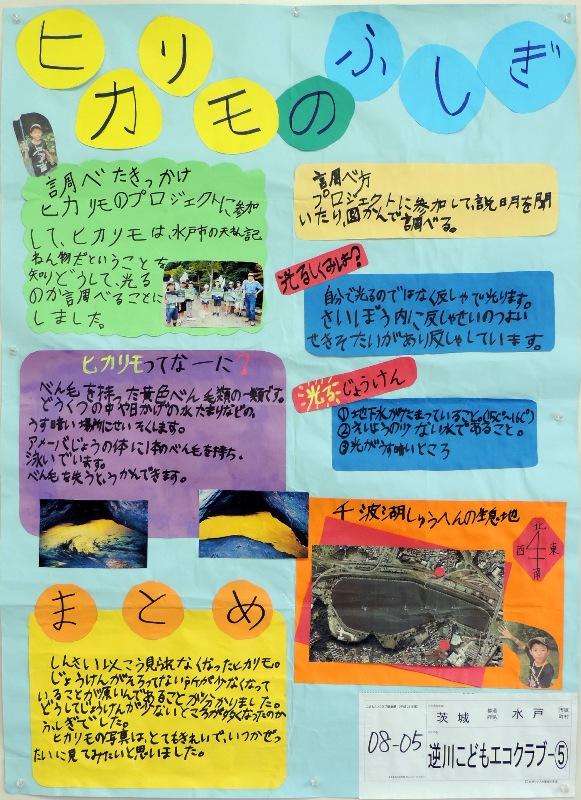 ヒカリモのふしぎ
調べたきっかけ
ヒカリモのプロジェクトに、参加
して、ヒカリモは、水戸市の天然記
ねん物だということを
知りどうして、光る
のか調べることに
しました。
調べ方
プロジェクトに参加して、説明を聞
いたり、図かんで調べる。
光るしくみは?
自分で光るのではなく反しゃで光ります。
さいぼう内に反しゃせいのつよい
しきそたいがあり反しゃしています。
ヒカリモってなーに?
べん毛を持った黄色べん毛類の一類です。
どうくつの中や日かげの水たまりなどの、
うす暗い場所にせいそくします。
アメーバじょうの体に1本のべん毛を持ち、
泳いでいます。
べん毛を失うとうかんできます。
光るじょうけん
①地下水がたまっていること。
②えいようの少ない水であること。
③光がうす暗いところ
千波湖しゅうへんの生息地
北
西 東
南
まとめ
しんさい以こう見られなくなったヒカリモ。
じょうけんがそろってない所が少なくなって
いることが原いんであることが分かりました。
どうしてじょうけんが少ないところが多くなったのか
ふしぎでした。
ヒカリモの写真は、とてもきれいで、いつかぜっ
たいに見てみたいと思いました。
茨城 都道府県 水戸 市区町村
08-05
逆川こどもエコクラブ-⑤